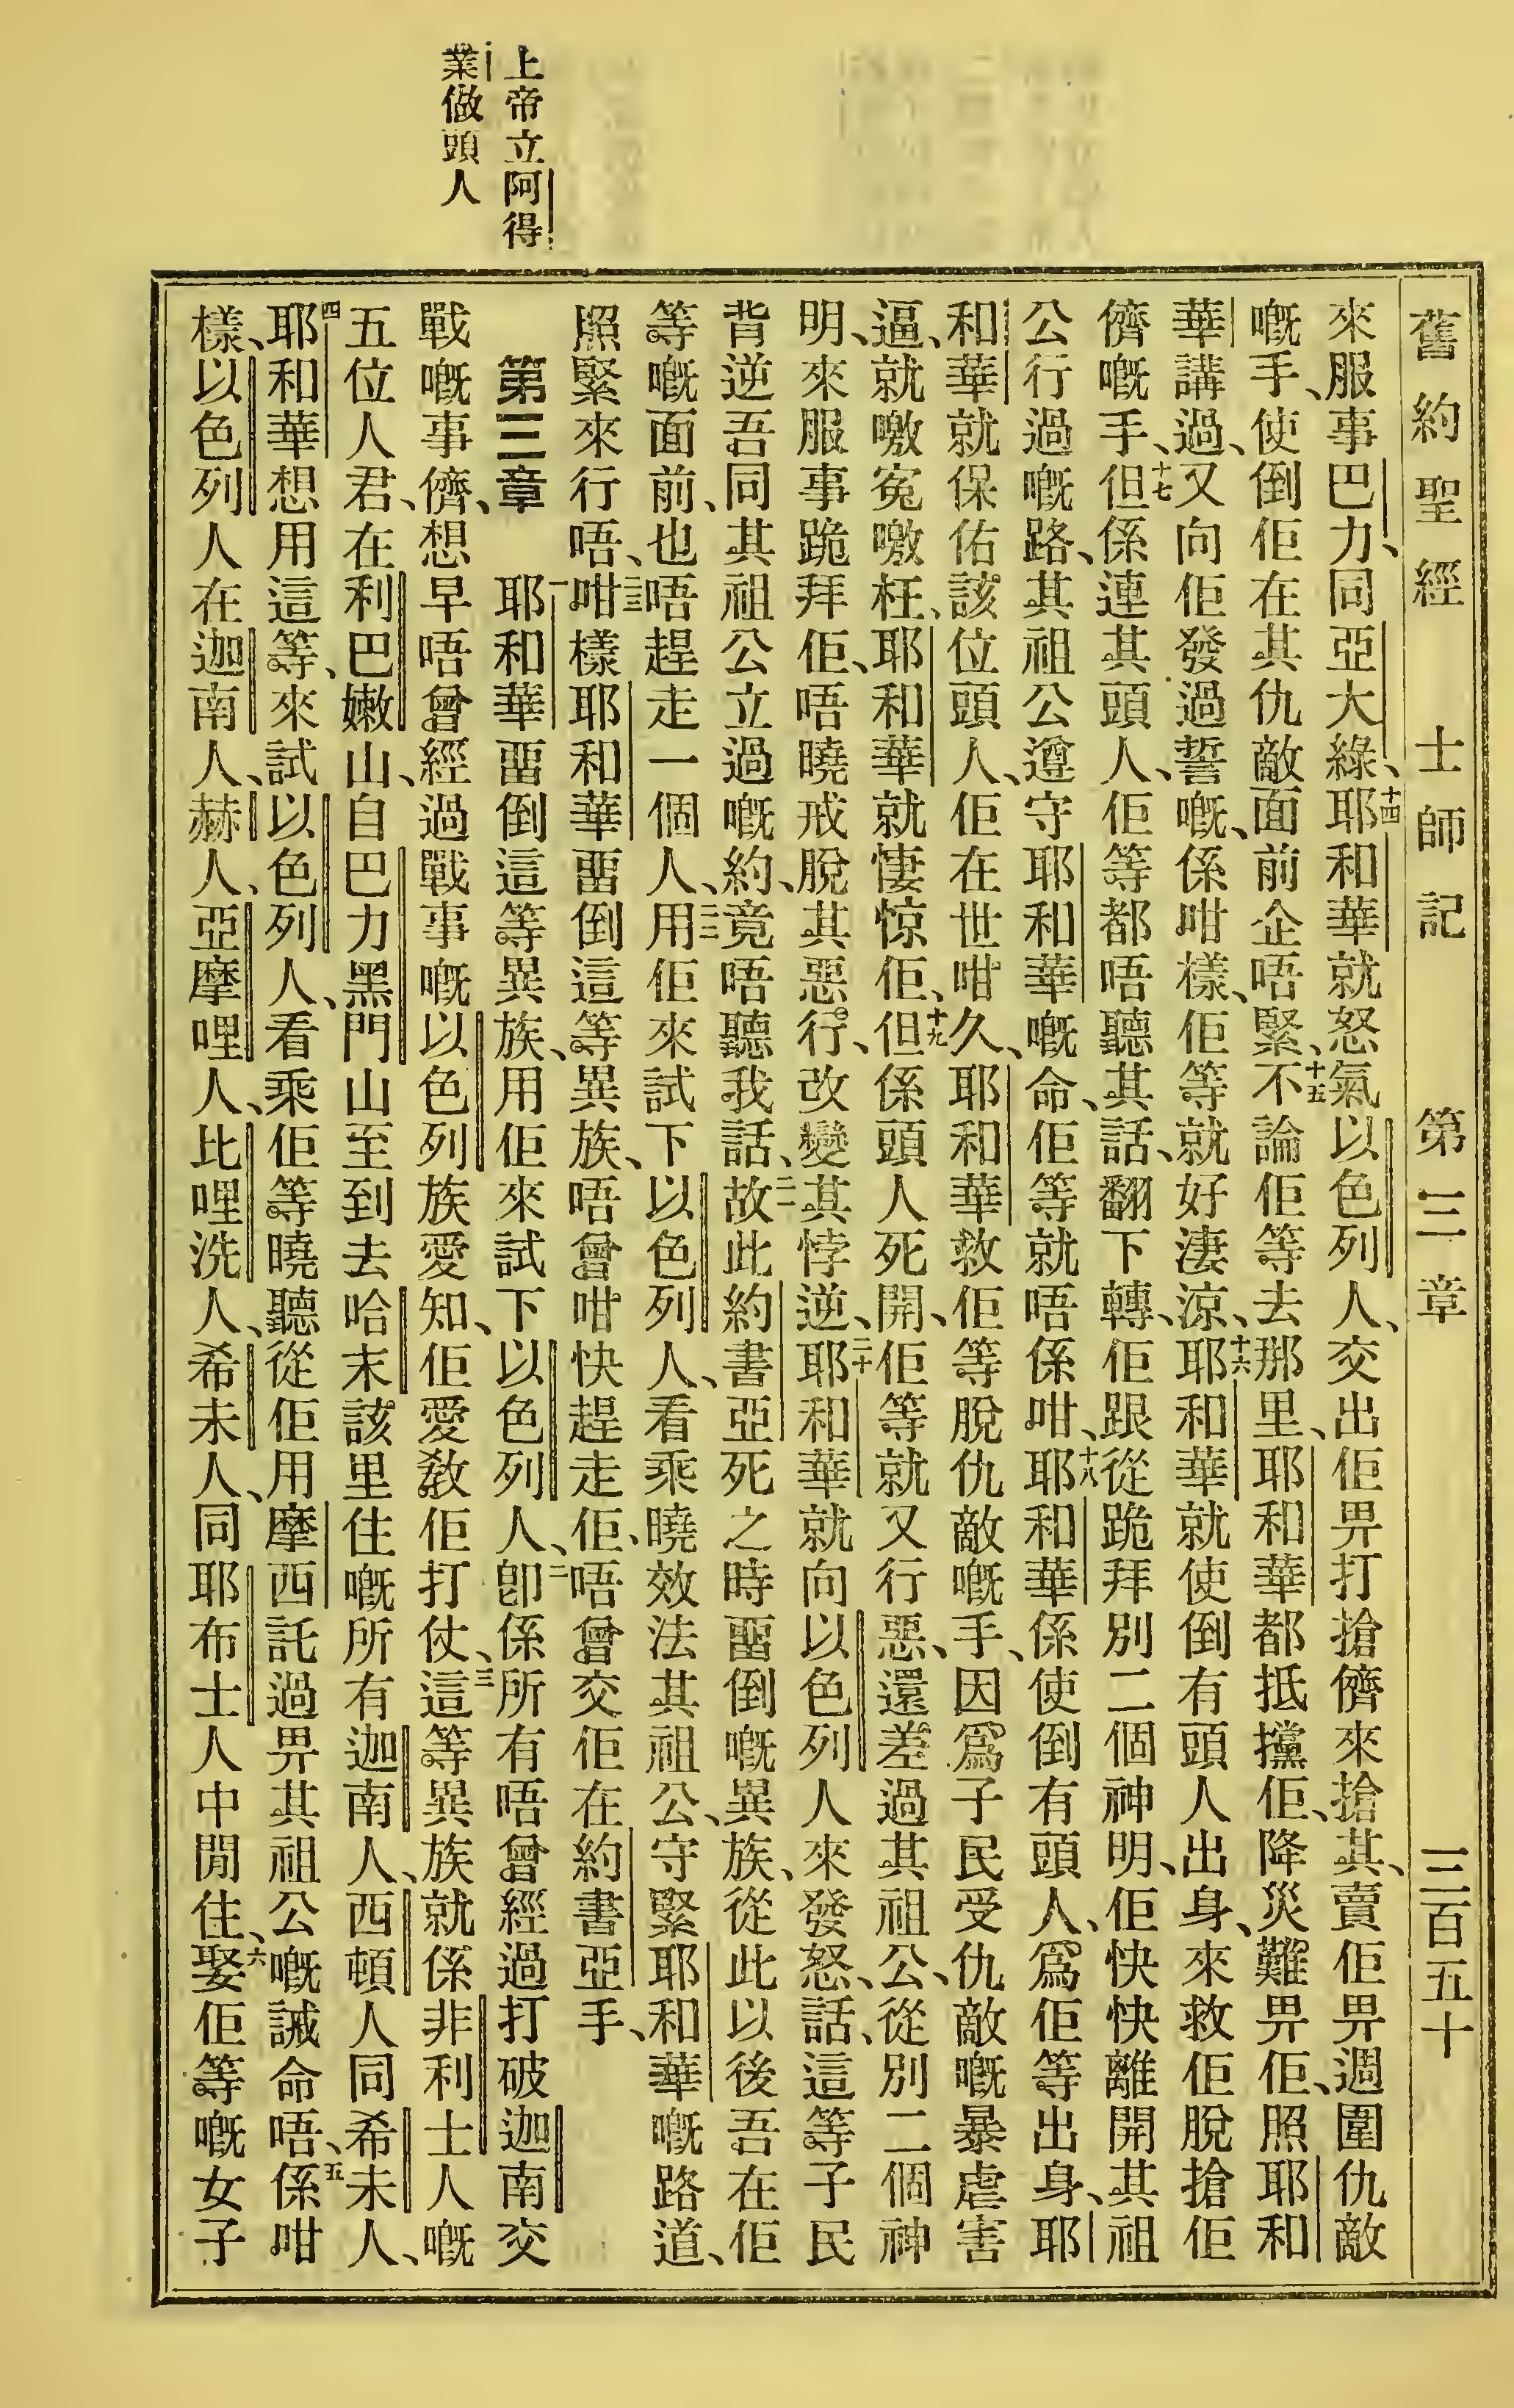 舊約聖經 士師記 第三章 三百五十
來服事巴力、同亞大綠、十四耶和華就怒氣以色列人、交出佢畀打搶儕來搶其、賣佢畀週圍仇敵
嘅手、使倒佢在其仇敵面前企唔緊、十五不論佢等去那里、耶和華都抵攩佢、降災難畀佢、照耶和
華講過、又向佢發過誓嘅、係咁樣、佢等就好淒涼、十六耶和華就使倒有頭人出身、來救佢脫搶佢
儕嘅手、十七但係連其頭人、佢等都唔聽其話、翻下轉、佢跟從跪拜別二個神明、佢快快離開其祖
公行過嘅路、其祖公遵守耶和華嘅命、佢等就唔係咁、十八耶和華係使倒有頭人、爲佢等出身、耶
和華就保佑該位頭人、佢在世咁久、耶和華救佢等脫仇敵嘅手、因爲子民受仇敵嘅暴虐害
逼、就噭寃噭枉、耶和華就悽惊佢、十九但係頭人死開、佢等就又行惡、還差過其祖公、從別二個神
明、來服事跪拜佢、唔曉戒脫其惡行、改變其悖逆、二十耶和華就向以色列人來發怒、話、這等子民
背逆吾同其祖公立過嘅約、竟唔聽我話、二一故此約書亞死之時畱倒嘅異族、從此以後吾在佢
等嘅面前、也唔趕走一個人、二二用佢來試下以色列人、看乘曉效法其祖公、守緊耶和華嘅路道、
照緊來行唔、二三咁樣耶和華畱倒這等異族、唔曾咁快趕走佢、唔曾交佢在約書亞手、
第三章 一耶和華畱倒這等異族、用佢來試下以色列人、二卽係所有唔曾經過打破迦南交
戰嘅事儕、想早唔曾經過戰事嘅以色列族愛知、佢愛敎佢打仗、三這等異族就係非利士人嘅
五位人君、在利巴嫩山、自巴力黑門山至到去哈末該里住嘅所有迦南人、西頓人同希未人、
四耶和華想用這等、來試以色列人、看乘佢等曉聽從佢用摩西託過畀其祖公嘅誡命唔、五係咁
樣、以色列人在迦南人、赫人、亞摩哩人、比哩洗人、希未人、同耶布士人中閒住、六娶佢等嘅女子
上帝立阿得
業做頭人